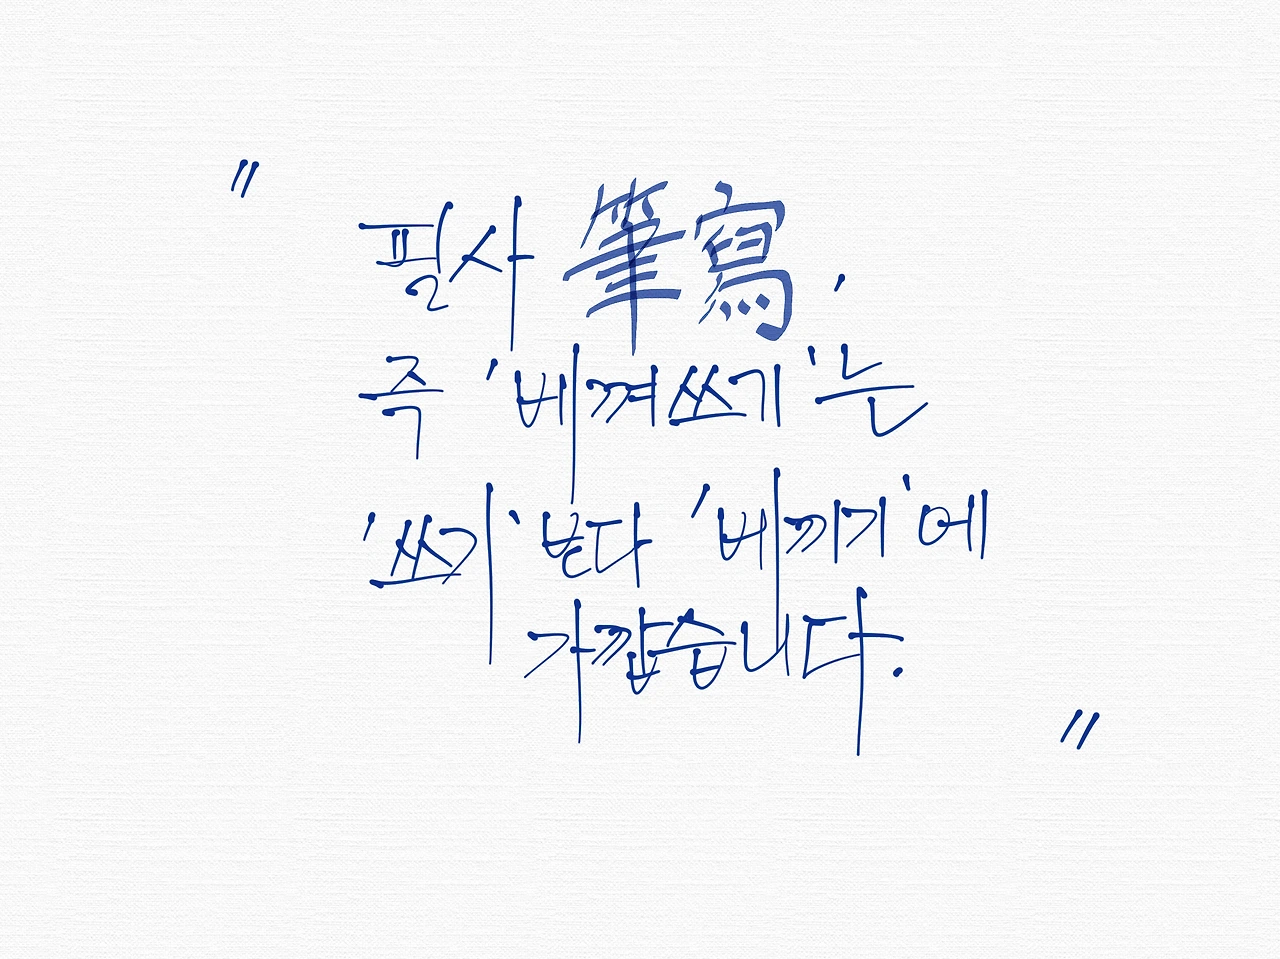 "
필사 筆寫,
즉 '베껴쓰기'는
'쓰기'보다 '베끼기'에
가깝습니다.
"